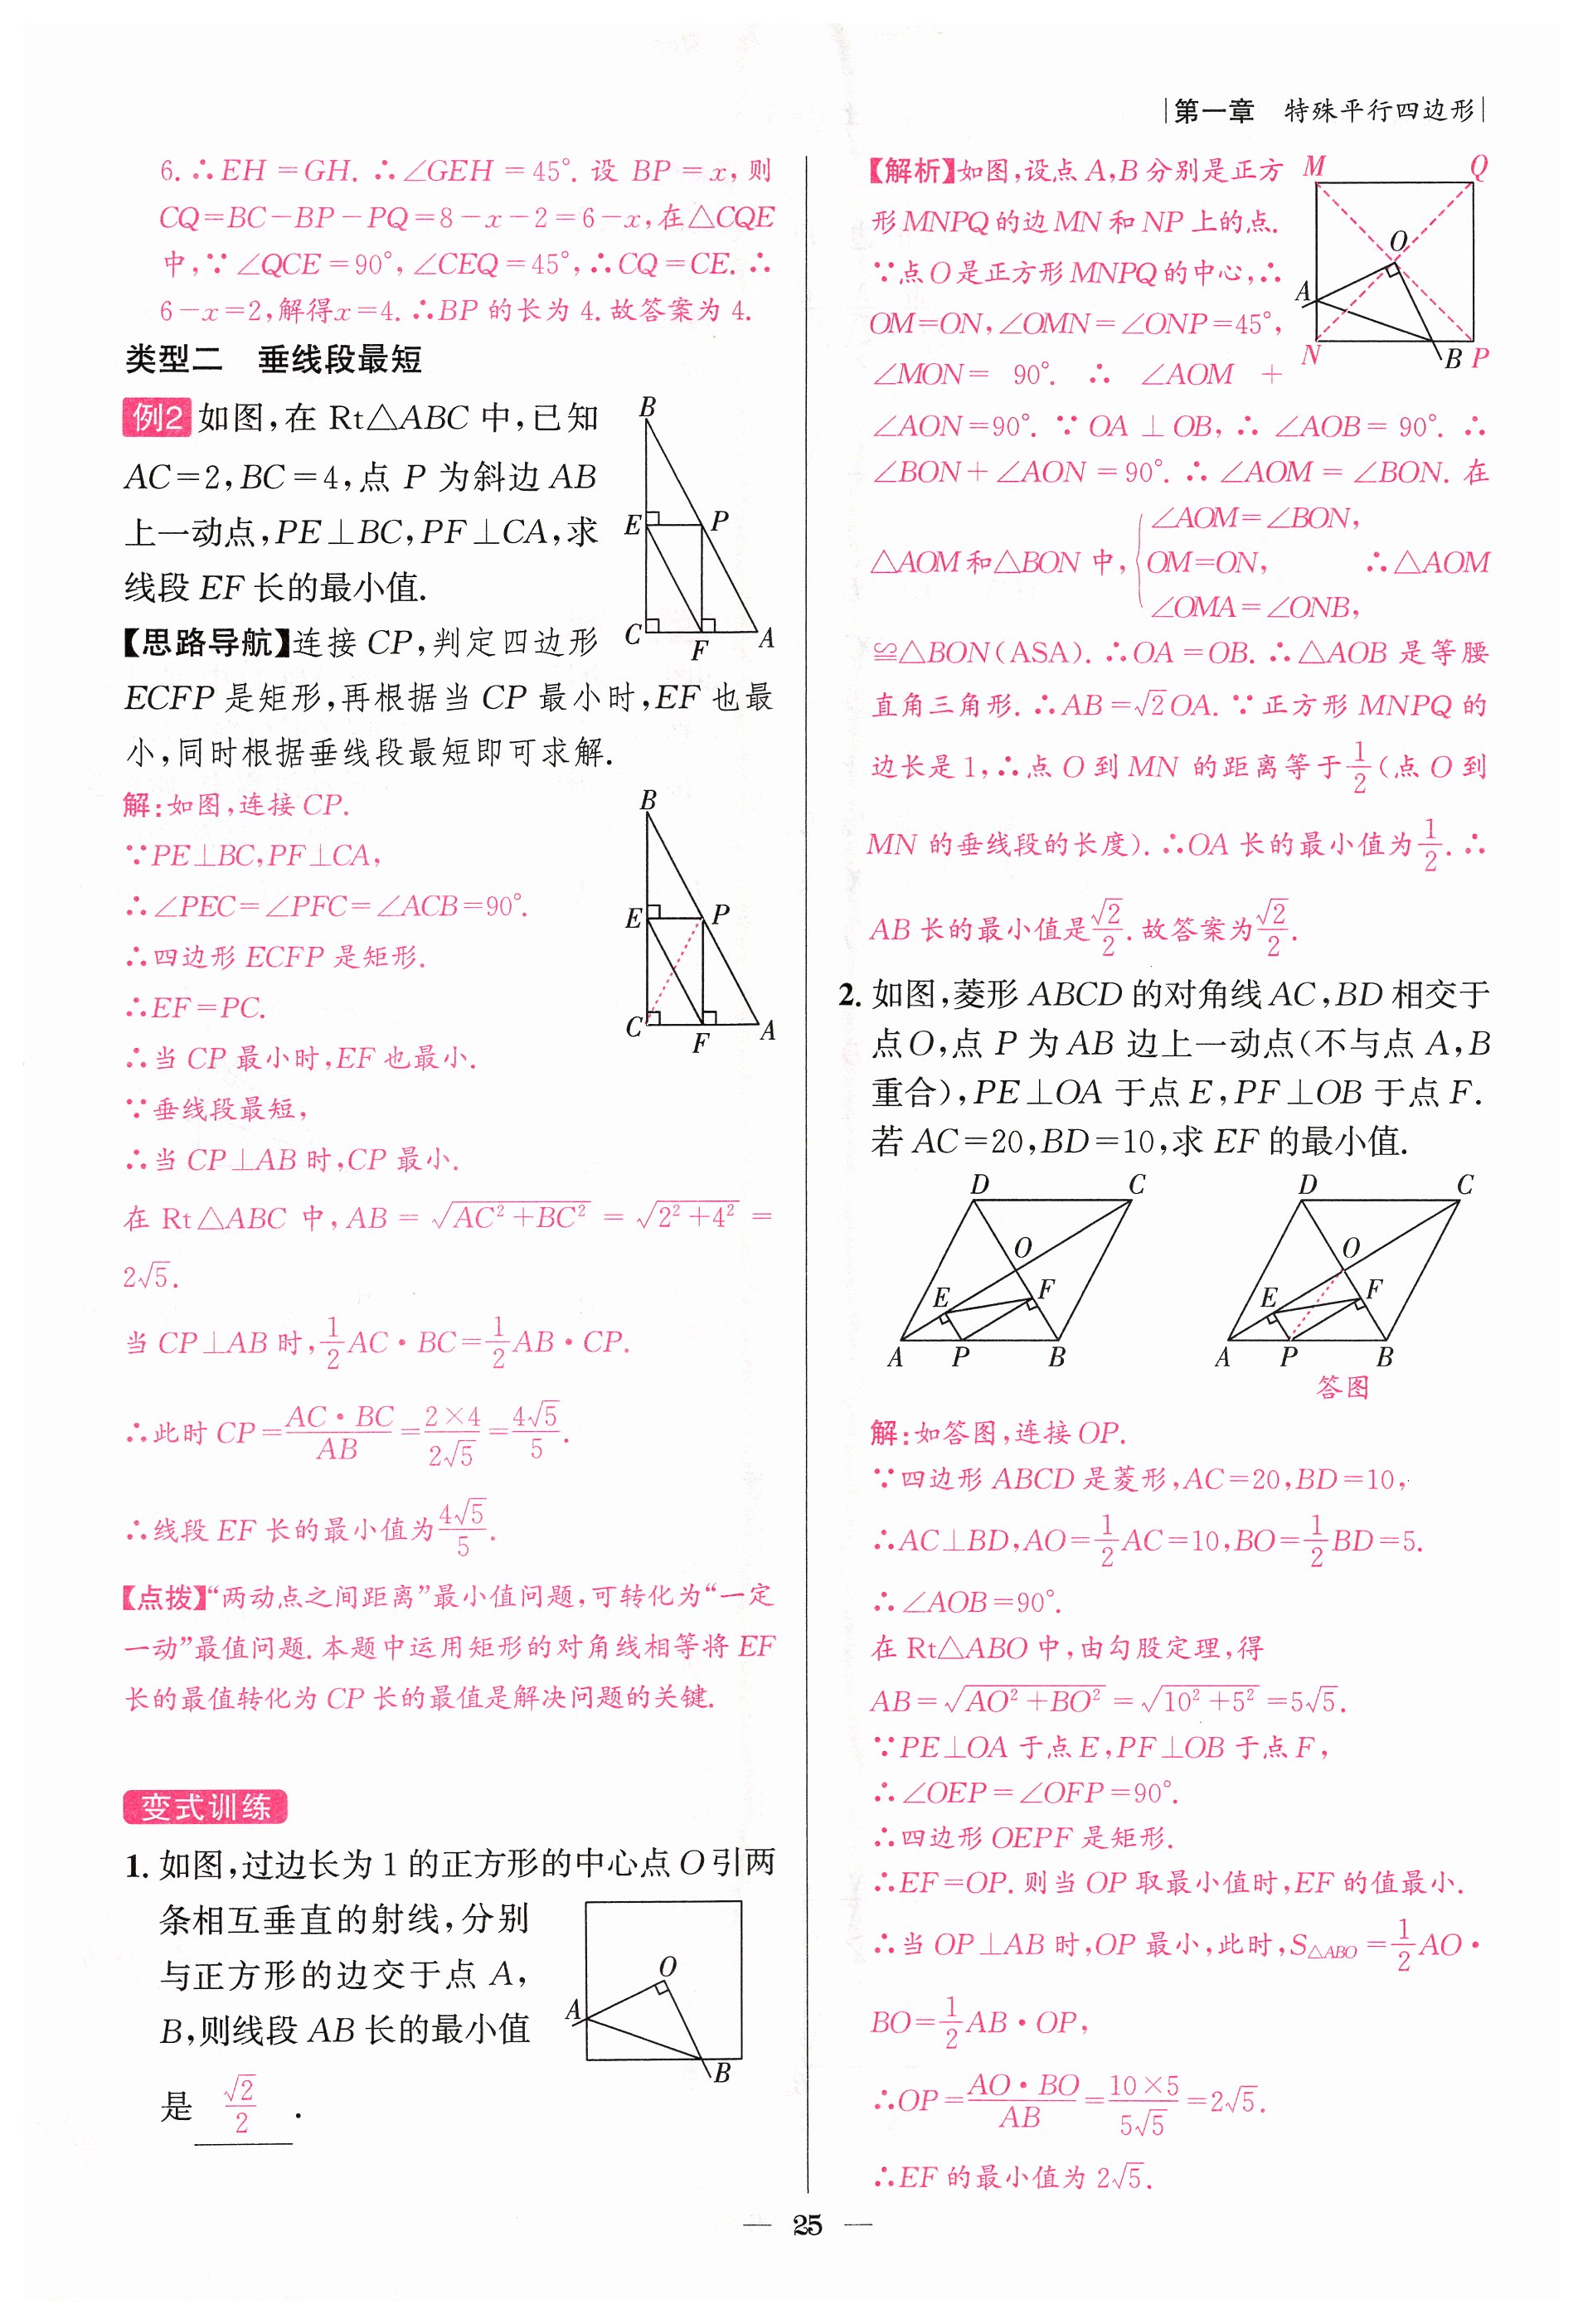 第一章 特殊平行四边形
6. ∴EH=GH. ∴∠GEH=45°. 设 BP=x, 则
CQ=BC-BP-PQ=8-x-2=6-x, 在△CQE
中, ∵∠QCE=90°, ∠CEQ=45°, ∴CQ=CE. ∴
6-x=2, 解得x=4. ∴BP 的长为 4. 故答案为 4.
类型二 垂线段最短
例2 如图, 在 Rt△ABC 中, 已知
AC=2, BC=4, 点 P 为斜边 AB
上一动点, PE⊥BC, PF⊥CA, 求
线段 EF 长的最小值.
B
E
P
C
F
A
【思路导航】连接 CP, 判定四边形
ECFP 是矩形, 再根据当 CP 最小时, EF 也最
小, 同时根据垂线段最短即可求解.
解: 如图, 连接 CP.
∵PE⊥BC, PF⊥CA,
∴∠PEC=∠PFC=∠ACB=90°.
∴四边形 ECFP 是矩形.
∴EF=PC.
∴当 CP 最小时, EF 也最小.
∵垂线段最短,
∴当 CP⊥AB 时, CP 最小.
B
E
P
C
F
A
在 Rt△ABC 中, AB=√(AC²+BC²)=√(2²+4²)=
2√5.
当 CP⊥AB 时, 1/2 AC·BC=1/2 AB·CP.
∴此时 CP=(AC·BC)/AB=(2×4)/(2√5)=(4√5)/5.
∴线段 EF 长的最小值为(4√5)/5.
【点拨】“两动点之间距离”最小值问题, 可转化为“一定
一动”最值问题. 本题中运用矩形的对角线相等将 EF
长的最值转化为 CP 长的最值是解决问题的关键.
变式训练
1. 如图, 过边长为 1 的正方形的中心点 O 引两
条相互垂直的射线, 分别
与正方形的边交于点 A,
B, 则线段 AB 长的最小值
是 √2/2 .
O
A
B
【解析】如图, 设点 A, B 分别是正方
形 MNPQ 的边 MN 和 NP 上的点.
∵点 O 是正方形 MNPQ 的中心, ∴
OM=ON, ∠OMN=∠ONP=45°,
∠MON= 90°. ∴ ∠AOM +
M
Q
O
A
N
B
P
∠AON=90°. ∵ OA⊥OB, ∴ ∠AOB=90°. ∴
∠BON+∠AON=90°. ∴ ∠AOM=∠BON. 在
△AOM 和△BON 中, { ∠AOM=∠BON,
OM=ON, ∴△AOM
∠OMA=∠ONB,
≌△BON(ASA). ∴OA=OB. ∴△AOB 是等腰
直角三角形. ∴AB=√2OA. ∵正方形 MNPQ 的
边长是 1, ∴点 O 到 MN 的距离等于1/2(点 O 到
MN 的垂线段的长度). ∴OA 长的最小值为1/2. ∴
AB 长的最小值是√2/2. 故答案为√2/2.
2. 如图, 菱形 ABCD 的对角线 AC, BD 相交于
点 O, 点 P 为 AB 边上一动点(不与点 A, B
重合), PE⊥OA 于点 E, PF⊥OB 于点 F.
若 AC=20, BD=10, 求 EF 的最小值.
D
C
O
E
F
A
P
B
D
C
O
E
F
A
P
B
答图
解: 如答图, 连接 OP.
∵四边形 ABCD 是菱形, AC=20, BD=10,
∴AC⊥BD, AO=1/2 AC=10, BO=1/2 BD=5.
∴∠AOB=90°.
在 Rt△ABO 中, 由勾股定理, 得
AB=√(AO²+BO²)=√(10²+5²)=5√5.
∵PE⊥OA 于点 E, PF⊥OB 于点 F,
∴∠OEP=∠OFP=90°.
∴四边形 OEPF 是矩形.
∴EF=OP. 则当 OP 取最小值时, EF 的值最小.
∴当 OP⊥AB 时, OP 最小, 此时, S△ABO=1/2 AO·
BO=1/2 AB·OP,
∴OP=(AO·BO)/AB=(10×5)/(5√5)=2√5.
∴EF 的最小值为 2√5.
— 25 —